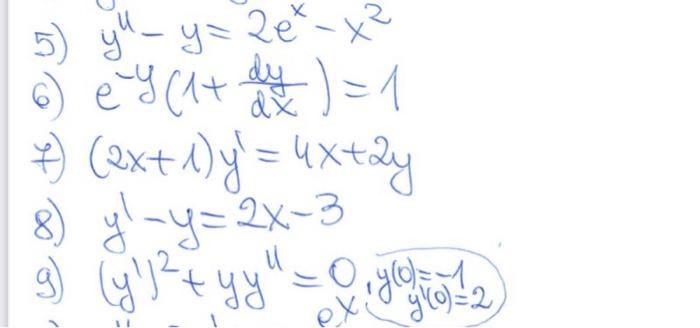 5) y'' - y = 2e^x - x^2
6) e^-y (1 + dy/dx) = 1
7) (2x+1)y' = 4x+2y
8) y' - y = 2x-3
9) (y')^2 + yy'' = 0, y(0)=-1
y'(0)=2